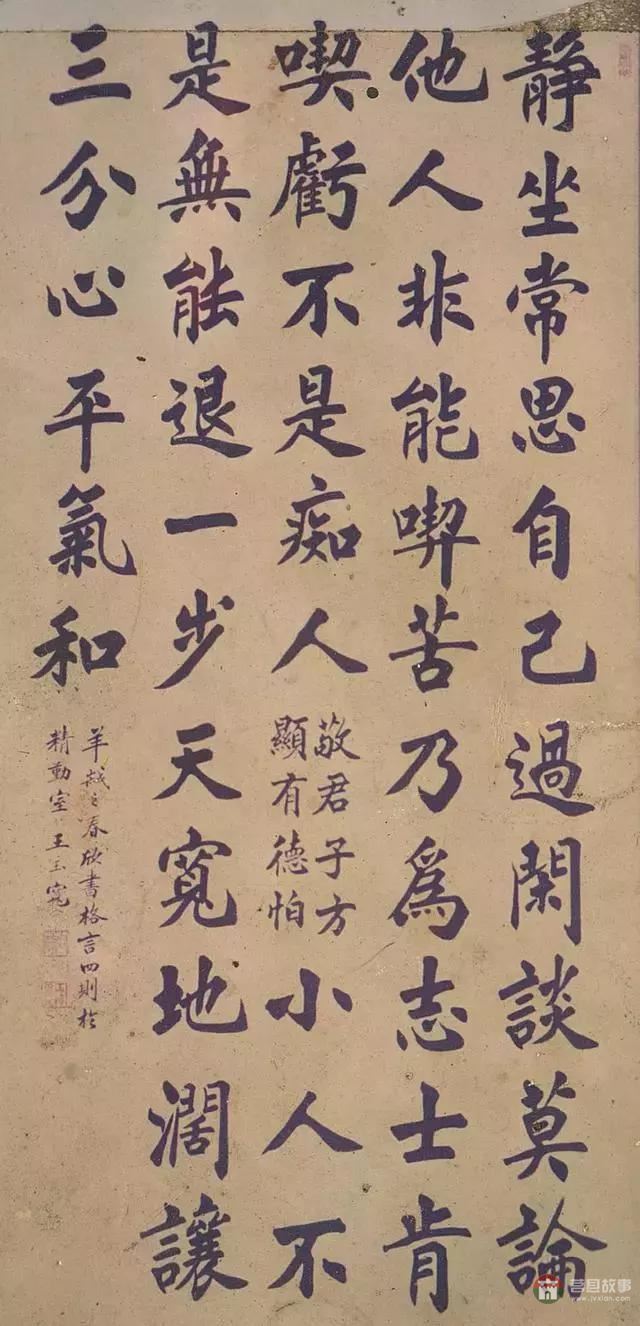 静坐常思自己過閑談莫論
他人非能喫苦乃爲志士肯
喫虧不是痴人
敬君子方
顯有德怕
小人不
是無能退一步天寬地濶讓
三分心平氣和
羊之春欣書格言四則於
精勤室王玉寬
莒县故事
www.jvxian.com